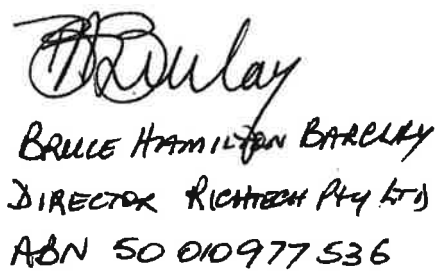 BHBarclay
BRUCE HAMILTON BARCLAY
DIRECTOR RICHTECH Pty LTD
ABN 50 010 977 536